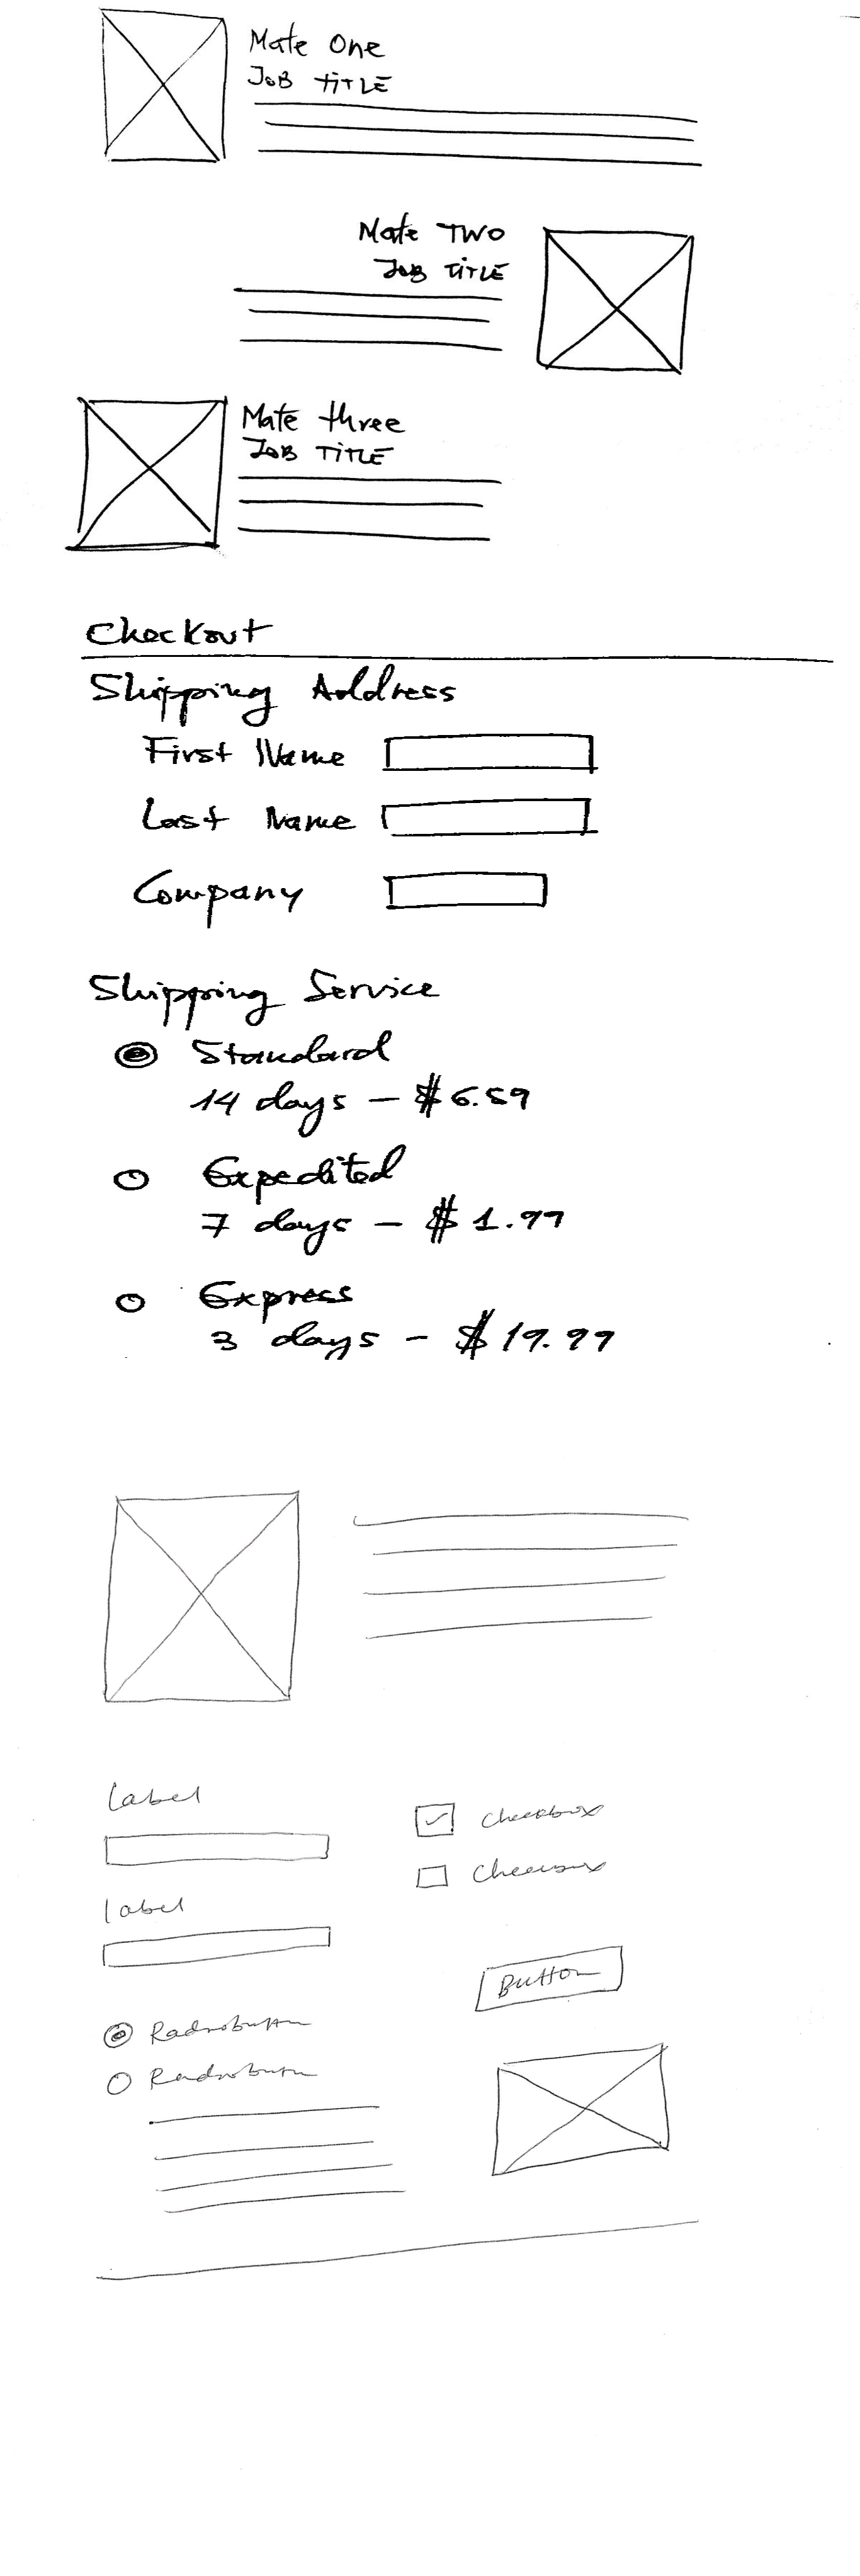 Mate One
JOB TITLE
Mate TWO
JOB TITLE
Mate three
JOB TITLE
Checkout
Shipping Address
First Name
Last Name
Company
Shipping Service
Standard
14 days - $6.59
Expedited
7 days - $1.99
Express
3 days - $19.99
Label
Checkbox
Checkbox
label
Button
Radiobutton
Radiobutton